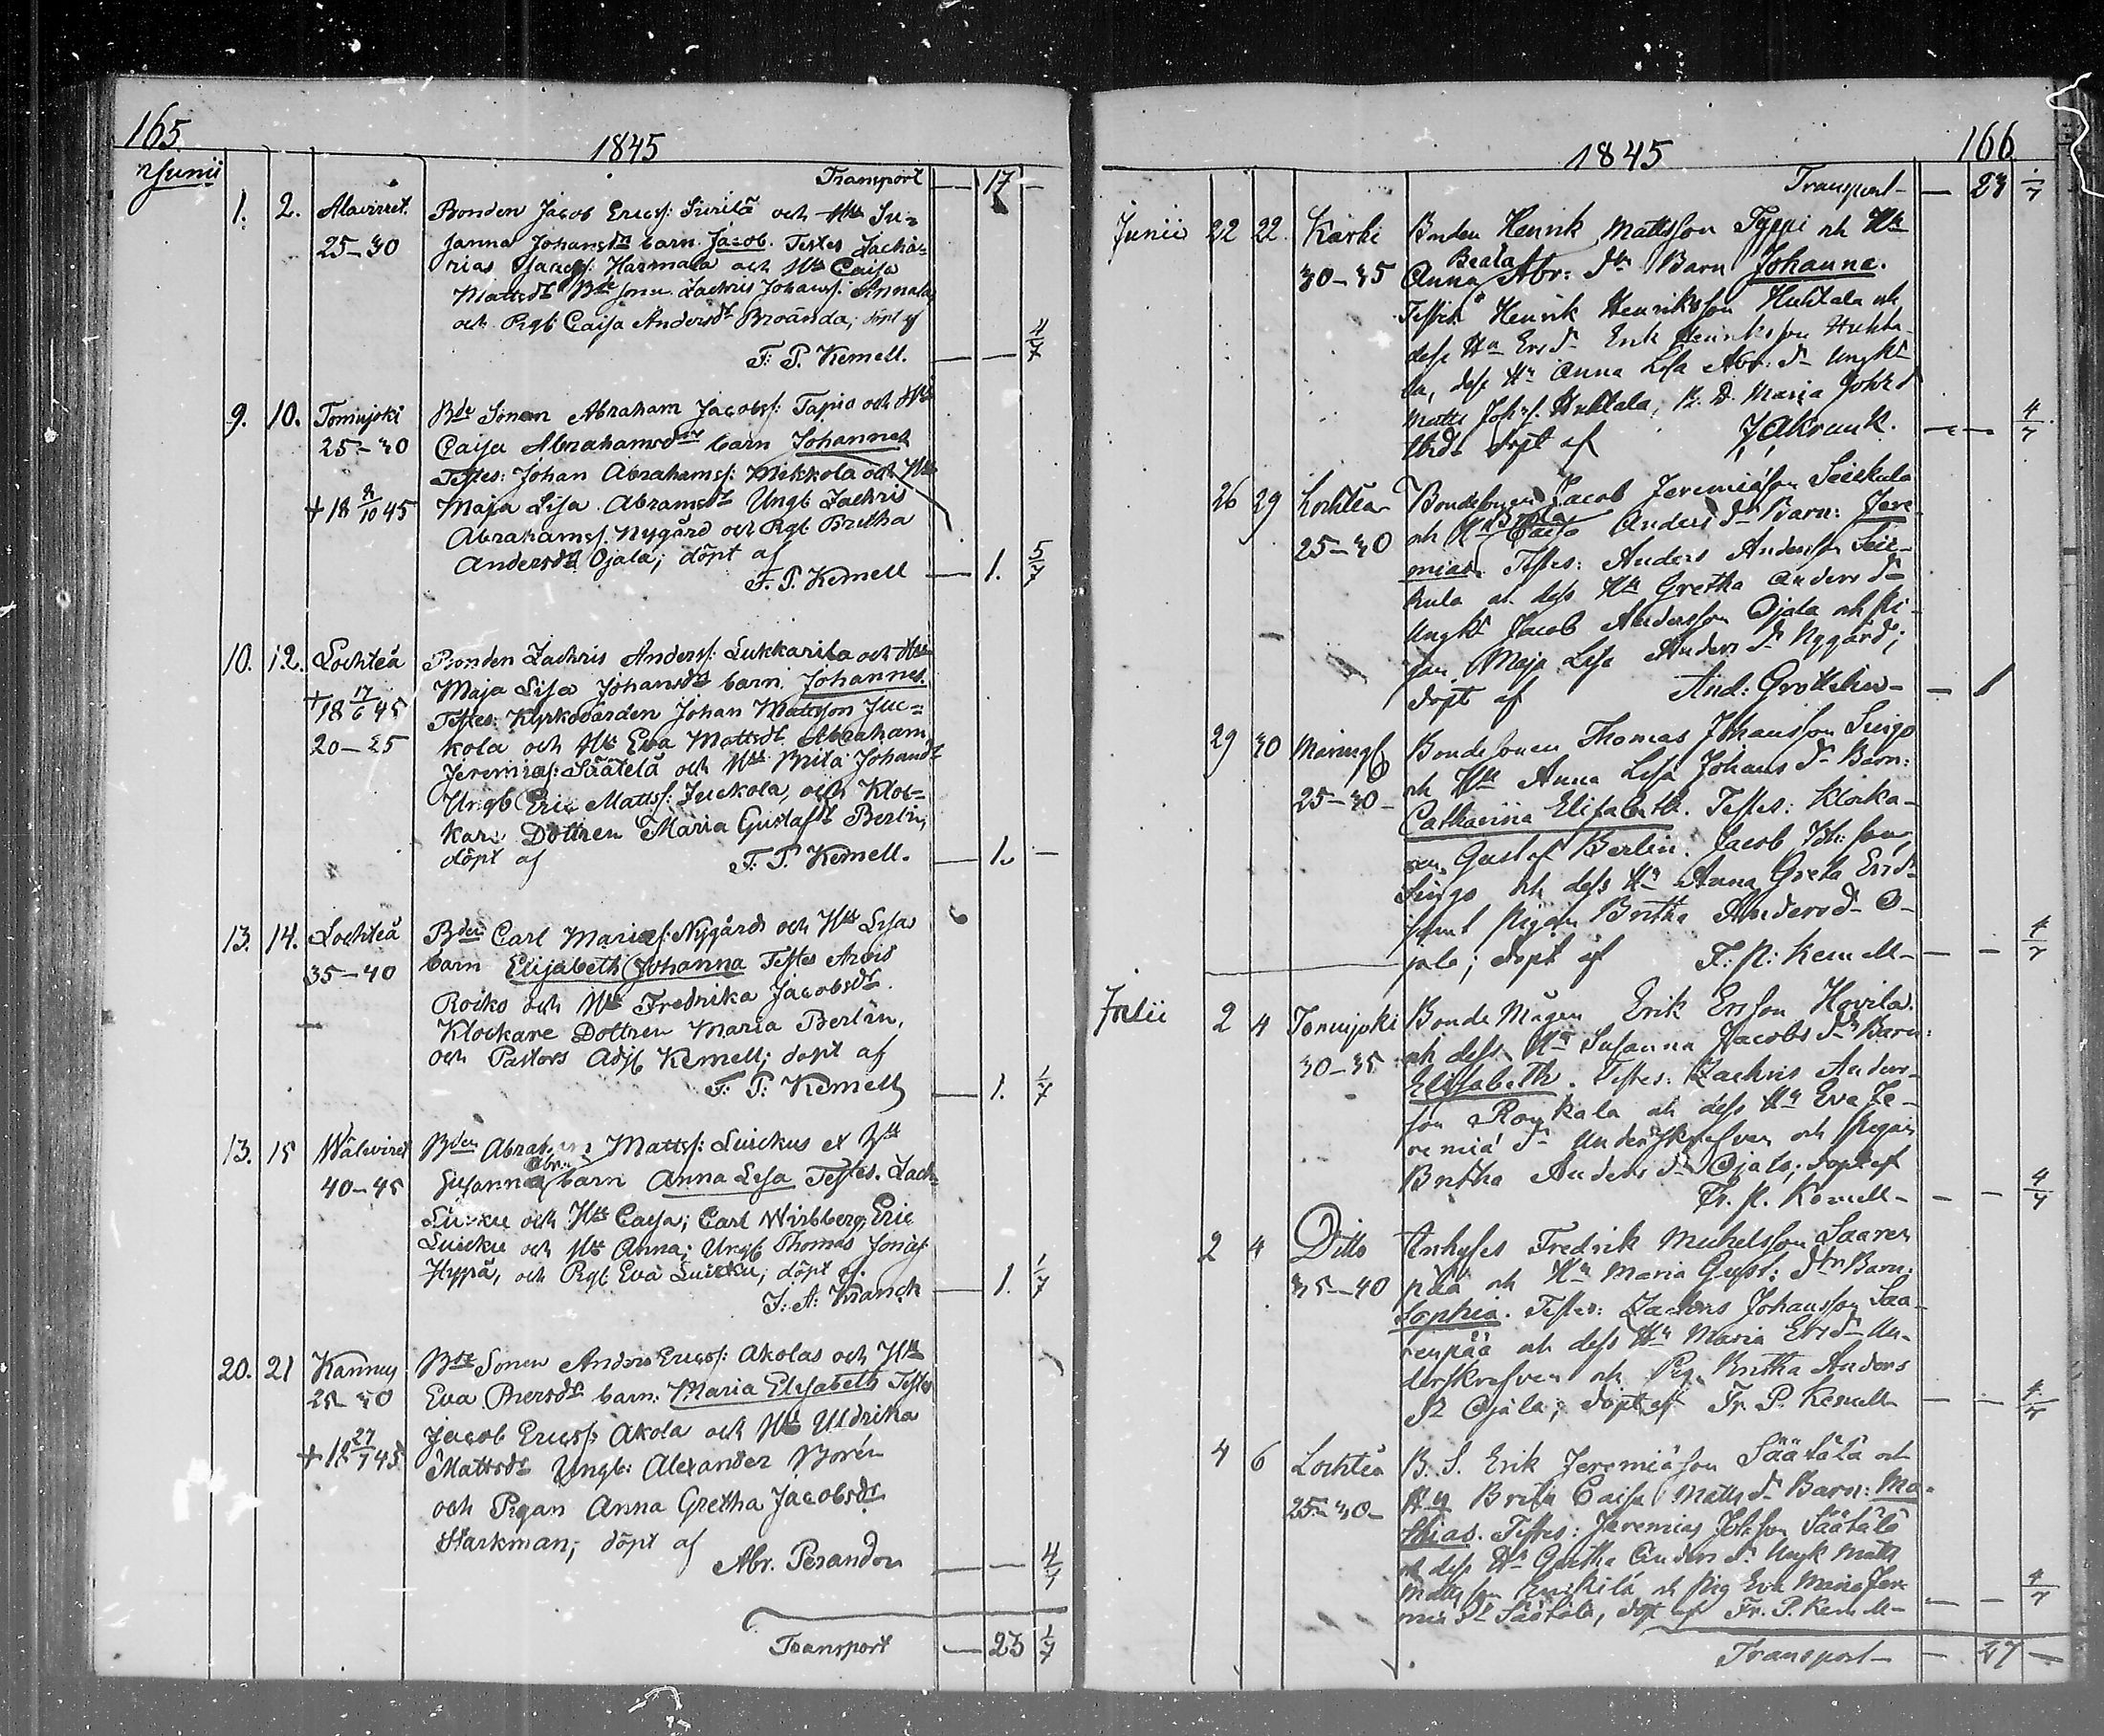 165.
1845
Junii
Transport — 17 —
1. 2. Alavirret. Bonden Jacob Ericss: Surilä och H: Su=
25–30 sanna Johansdr barn Jacob. Testes Zacha=
rias Jacobs: Harmala och H: Caisa
Mattsdr Bde sonen Zachris Johanss: Annala
och Pig: Caisa Andersdr Broända; döpt af
F: P. Kemell. — — 4/7
9. 10. Tomujoki Bde Sonen Abraham Jacobss: Tapio och H:
25–30 Caisa Abrahamsdr barn Johannes
Testes: Johan Abrahamss: Mikkola och H:
+ 18 8/10 45 Maja Lisa Abramsdr Ungk Zachris
Abrahamss. Nygård och Pgt Bretha
Andersdr Ojala; döpt af
F. P. Kemell — 1. 5/7
10. 12. Lochteå Bonden Zachris Anderss: Lukkarila och H:
+18 17/6 45 Maja Lisa Johansdr barn Johannes.
Testes: Kyrkovärden Johan Mattsson Juc=
20–25 kola och H: Eva Mattsdr Abraham
Jeremias: Säätelä och H: Brita Johansdr
Ungk Eric Mattss: Juckola, och Kloc=
kare Dottren Maria Gustafsdr Berlin,
döpt af F: P. Kemell. — 1. —
13. 14. Lochteå Bden Carl Marias: Nygård och H: Lisa
35–40 barn Elisabeth Johanna Testes
Roiko och H: Fredrika Jacobsdr.
Klockare Dottren Maria Berlin,
och Pastors Adj: Kemell; döpt af
F: P: Kemell — 1. 1/7
13. 15 Wälivirret Bden Abraham Mattss: Luickus et H:
40–45 Susanna Abr: barn Anna Lisa Testes. Zach:
Luicku och H: Caisa; Carl Wirbberg, Eric
Luicku och H: Anna; Ungk Thomas Jonass:
Hyppä, och Pgt Eva Luicku; döpt af
J: A: Kranck — 1. 1/7
20. 21 Kannus Bde Sonen Anders Ericss: Akolas och H:
25–30 Eva Persdr barn: Maria Elisabeth Testes
Jacob Ericss: Akola och H: Uldrika
+ 18 27/7 45 Mattsdr Ungk: Alexander Borén
och Pigan Anna Gretha Jacobsdr
Starkman; döpt af
Abr. Perander — — 4/7
Transport — 23 1/7
1845
166
Transport — 23 1/7
Junii 22 22. Karhi Bonden Henrik Mattsson Typpi och H:
Beata
30–35 Anna Abr: dr Barn Johanna.
Testes Henrik Henriksson Huhtala och
dess H: Ersd. Erik Henriksson Huhta-
la, dess H: Anna Lisa Abr: dr Ungk:
Matts Joh:s: Huhtala, B. D. Maria Johsd
döpt af J A Kranck. — — 4/7
26 29 Lochteå Bondesonen Jacob Jeremiasson Seickula
Brita
25–30 och H: Caisa Anders dr Barn: Jere-
mias. Testes: Anders Andersson Seic-
kula och dess H: Gretha Anders dr
Ungk: Jacob Andersson Ojala och Pi-
gan Maja Lisa Anders dr Nygård;
döpt af And: — 1
29 30 Bondesonen Thomas Johansson Singo
25–30 och H: Anna Lisa Johans dr Barn:
Catharina Elisabeth. Testes: Klocka-
ren Gustaf Berlin. Jacob Joh:son
Singo och dess H: Anna Greta Ersd
samt Pigan Britha Andersd. O-
jala; döpt af F: P: Kemell — — 4/7
Julii 2 4 Tomujoki Bonde Mågen Erik Ersson Hovila
30–35 och dess H: Susanna Jacobs dr Barn:
Elisabeth. Testes: Zachris Anders-
son Roukala och dess H: Eva Je-
remiæ dr Underskrefven och Pigan
Britha Anders dr Ojala; döpt af
Fr. P. Kemell — — 4/7
2 4 Ditto Enhyses Fredrik Michelsson Saaren
35–40 pää och H: Maria Gust: dtr Barn:
Sophia. Testes: Zachris Johansson Saa-
renpää och dess H: Maria Ersd Un-
derskrefven och Pig. Britha Anders
dr Ojala; döpt af Fr P. Kemell — — 4/7
4 6 Lochteå B. S. Erik Jeremiasson Säätälä och
25–30 H: Brita Caisa Matts dr Barn: Ma-
thias. Testes: Jeremias Johsson Säätälä
och dess H: Gretha Anders dr Ungk Matts
Mattsson och Pig Eva Maria Jere-
mias dr Säätälä, döpt af Fr. P. Kemell — — 4/7
Transport — 27 —